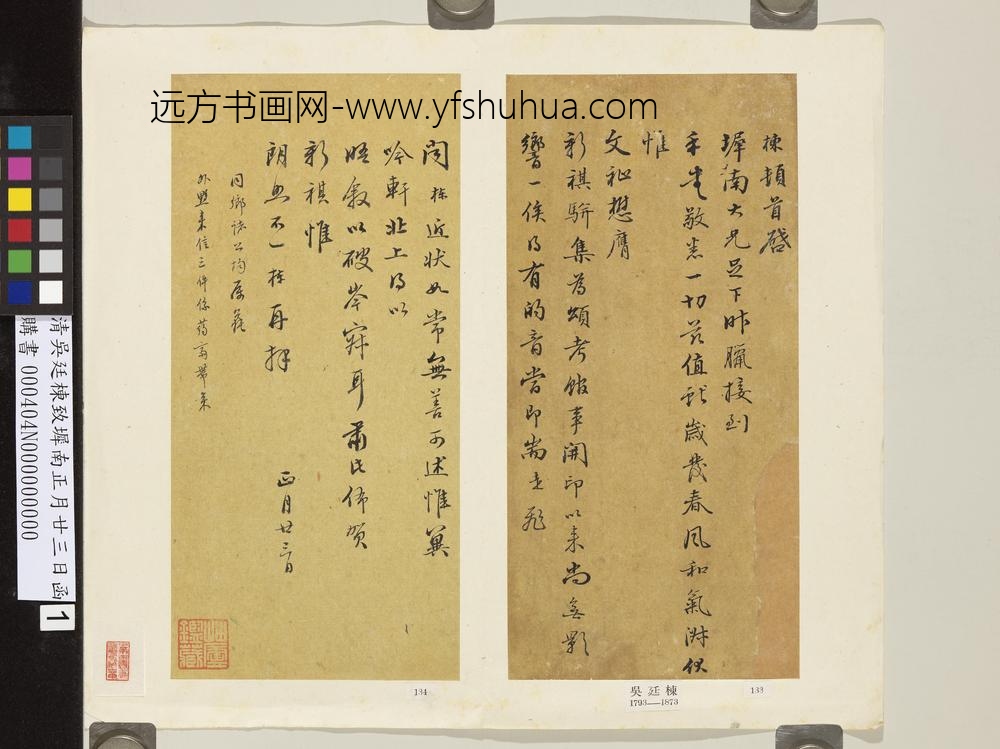 远方书画网-www.yfshuhua.com
棟頓首啓
墀南大兄足下昨臘接到
手書敬悉一切茲值獻歲發春風和氣淋伏
惟
文祉懋膺
新祺駢集為頌考館事開印以來尚無影
響一俟得有的音當即耑走飛
聞棟近狀如常無善可述惟冀
吟軒北上得以
晤敘以破岑寂耳肅此佈賀
新祺惟
朗照不一棟再拜
正月廿三日
同鄉諸公均屬
外與來信三件係蒋 帶來
134
吳廷棟
1793—1873
133
清吳廷棟致墀南正月廿三日函
購書 000404N000000000
1